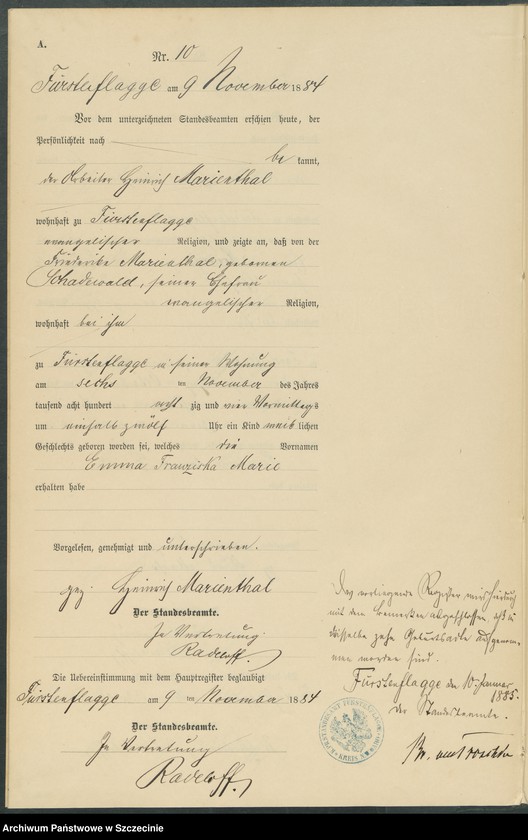 A.
Nr. 10
Fürstenflagge am 9 November 1884
Vor dem unterzeichneten Standesbeamten erschien heute, der
Persönlichkeit nach
bekannt,
der Arbeiter Heinrich Marienthal
wohnhaft zu Fürstenflagge
evangelischer Religion, und zeigte an, daß von der
Friederike Marienthal, geborenen
Schadewald, seiner Ehefrau
evangelischer Religion,
wohnhaft bei ihm
zu Fürstenflagge in seiner Wohnung
am sechs ten November des Jahres
tausend acht hundert acht zig und vier Vormittags
um einhalb zwölf Uhr ein Kind weiblichen
Geschlechts geboren worden sei, welches die Vornamen
Emma Franziska Marie
erhalten habe
Vorgelesen, genehmigt und unterschrieben.
gez. Heinrich Marienthal
Der Standesbeamte.
In Vertretung
Radeloff.
Die Uebereinstimmung mit dem Hauptregister beglaubigt
Fürstenflagge am 9 ten November 1884
Der Standesbeamte.
In Vertretung
Radeloff.
Das vorliegende Register wird hierdurch
mit dem Bemerken abgeschlossen, daß in
dasselbe zehn Geburtsakte aufgenom-
men worden sind.
Fürstenflagge den 10. Januar
1885.
Der Standesbeamte.
Archiwum Państwowe w Szczecinie